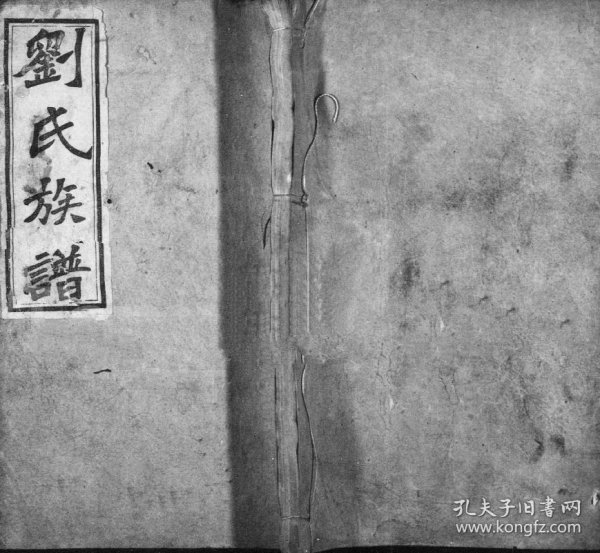 劉氏族譜
孔夫子旧書网
www.kongfz.com